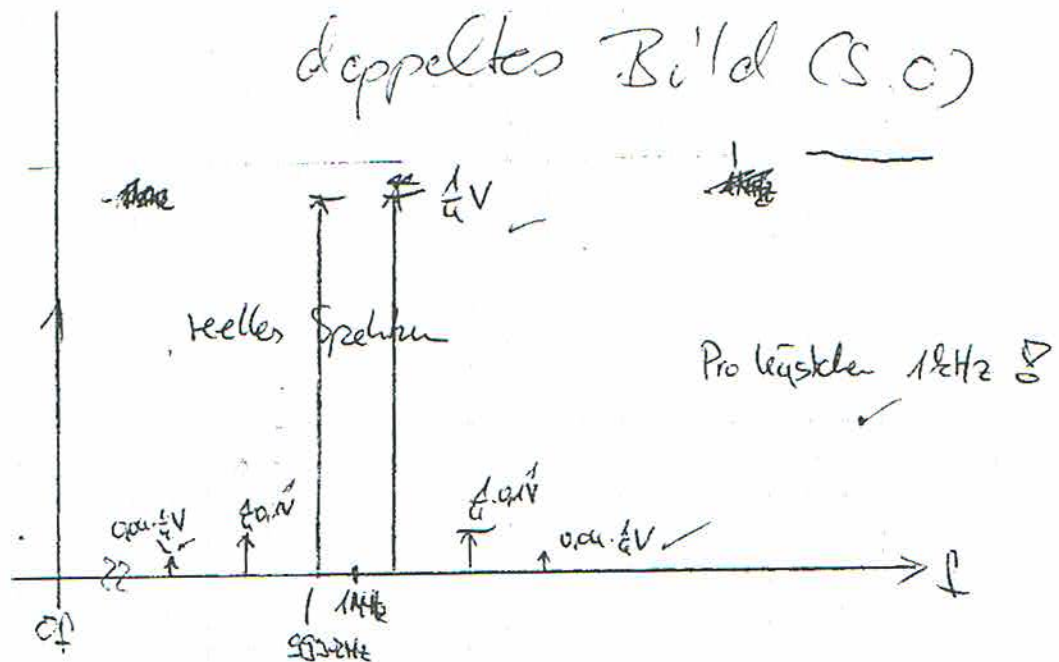 doppeltes Bild (s.o)
1/4 V
reelles Spektrum
Pro Kästchen 1kHz !
0,04·1/4V
1/4 0,1V
1/4·0,1V
0,04·1/4V
f
0f
1MHz
999kHz